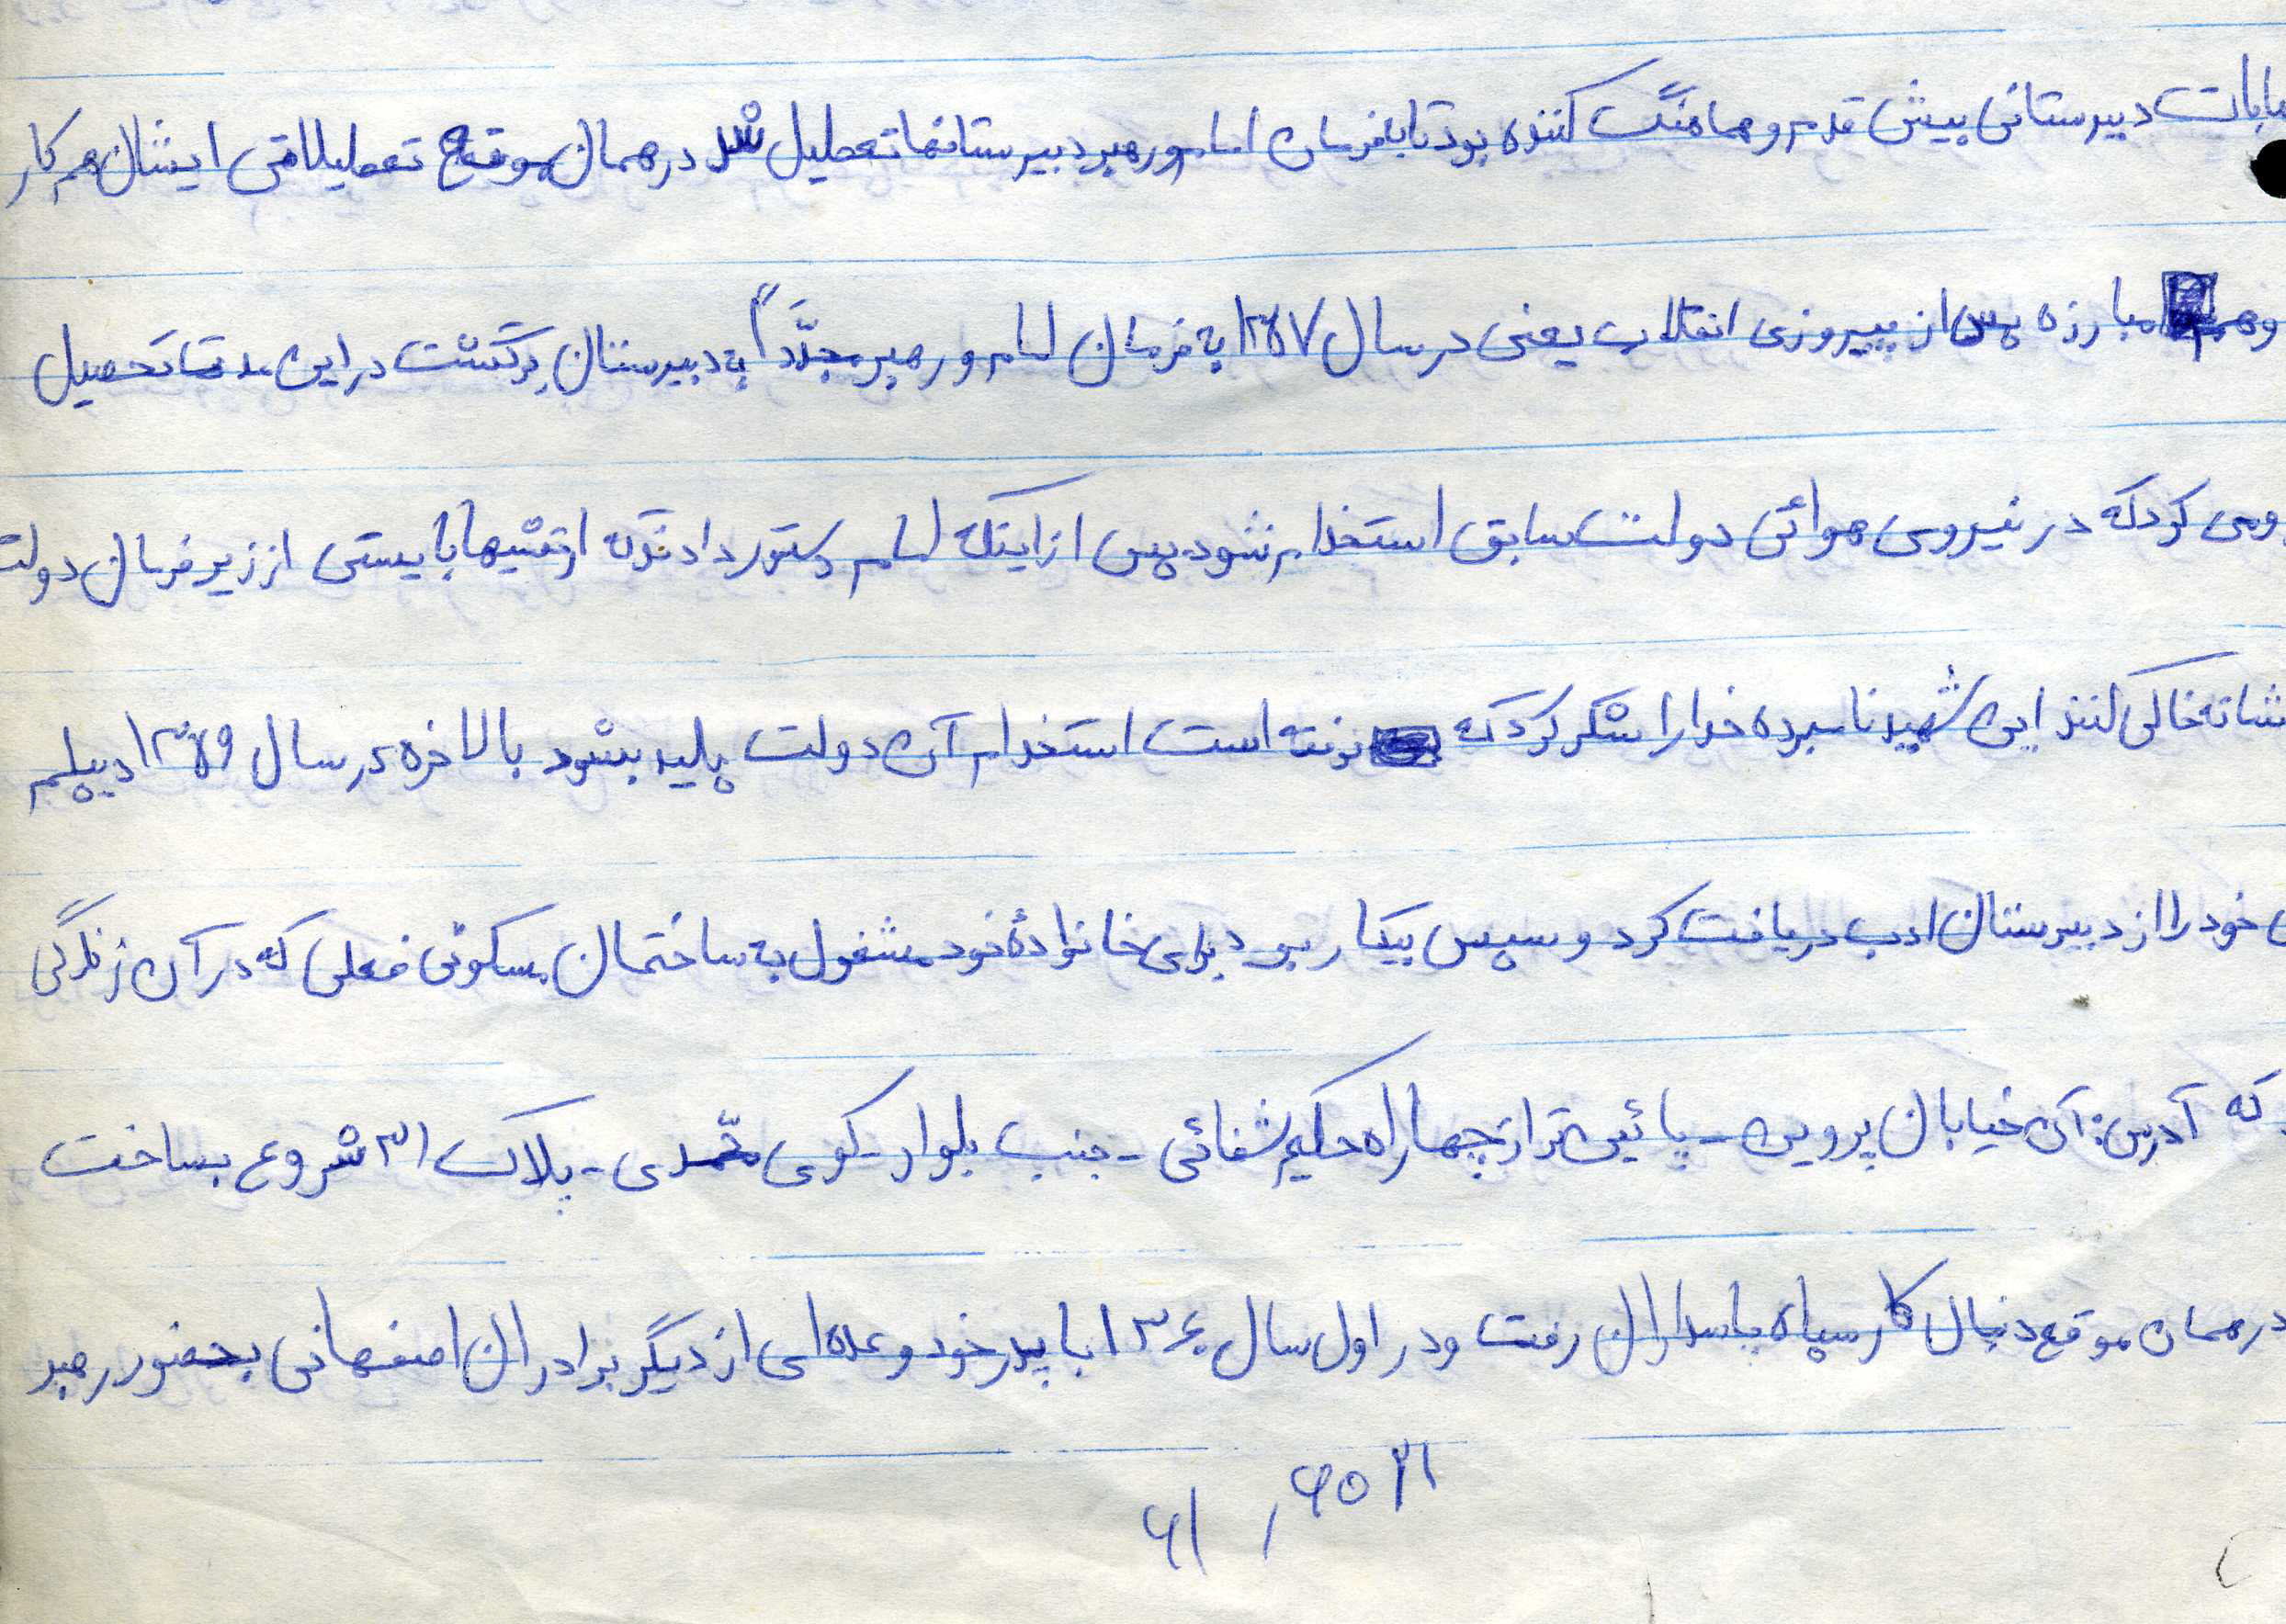 دبیرستانی پیش قدم و هماهنگ کننده بود تا بافرمان امام و رهبر دبیرستانها تعطیل شد در همان موقع تعطیلاتی ایشان هم کار
مبارزه پس از پیروزی انقلاب یعنی در سال ۱۳۵۷ به فرمان امام و رهبر مجدّداً به دبیرستان برگشت در این مدت تحصیل
کرد که در نیروی هوائی دولت سابق استخدام نشود پس از اینکه امام دستور داد که ارتشیها بایستی از زیر فرمان دولت
شانه خالی کنند این شهید نامبرده خدا را شکر کرد که نرفته است استخدام آن دولت پلید بشود بالاخره در سال ۱۳۵۹ دیپلم
خود را از دبیرستان ادب دریافت کرد و سپس بیکار بود برای خانوادهٔ خود مشغول به ساختمان مسکونی فعلی که در آن زندگی
که آدرس: آن خیابان پروین - پائین‌تر از چهارراه حکیم شفائی - جنب بلوار - کوی محمّدی - پلاک ۳۱ شروع بساخت
در همان موقع دنبال کار سپاه پاسداران رفت و در اول سال ۱۳۶۰ با پدر خود و عده‌ای از دیگر برادران اصفهانی بحضور رهبر